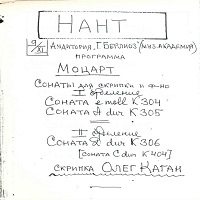 НАНТ
9/XI Аудитория "Г. Берлиоз" (муз. академия)
программа
Моцарт
Сонаты для скрипки и ф-но
I отделение
Соната e moll K 304
Соната A dur K 305
II отделение
Соната D dur K 306
[Соната C dur K 404]
скрипка Олег Каган